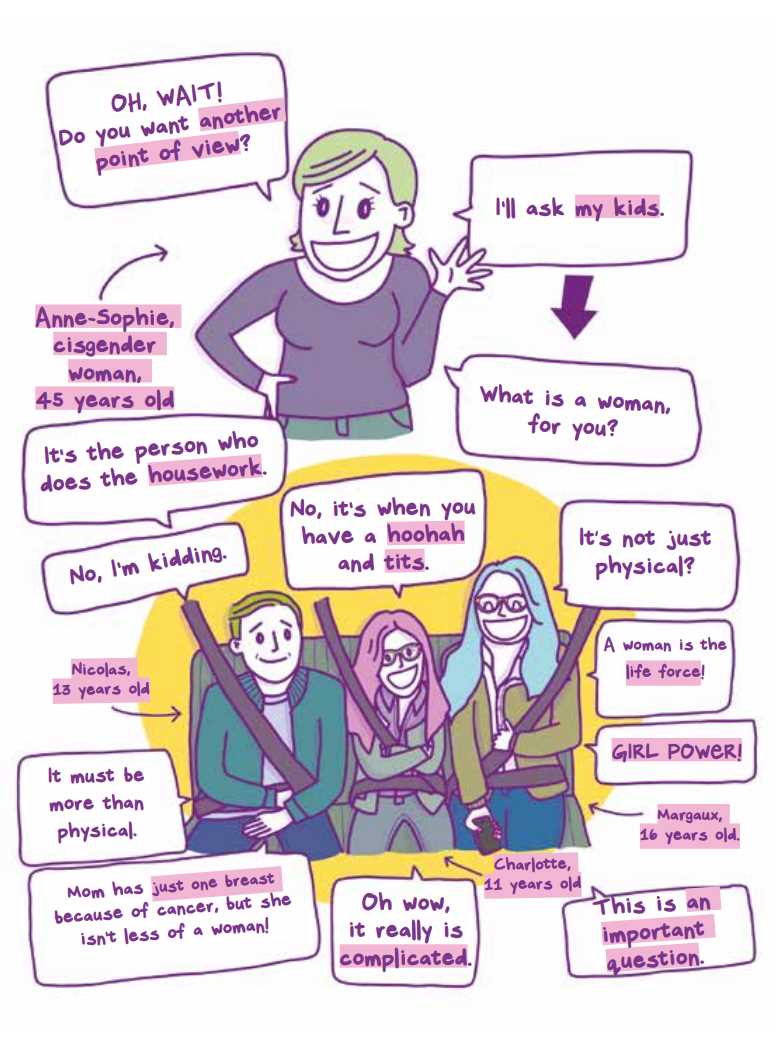 OH, WAIT!
Do you want another
point of view?
I'll ask my kids.
Anne-Sophie,
cisgender
woman,
45 years old
What is a woman,
for you?
It's the person who
does the housework.
No, I'm kidding.
No, it's when you
have a hoohah
and tits.
It's not just
physical?
A woman is the
life force!
GIRL POWER!
Nicolas,
13 years old
It must be
more than
physical.
Margaux,
16 years old.
Charlotte,
11 years old
Mom has just one breast
because of cancer, but she
isn't less of a woman!
Oh wow,
it really is
complicated.
This is an
important
question.